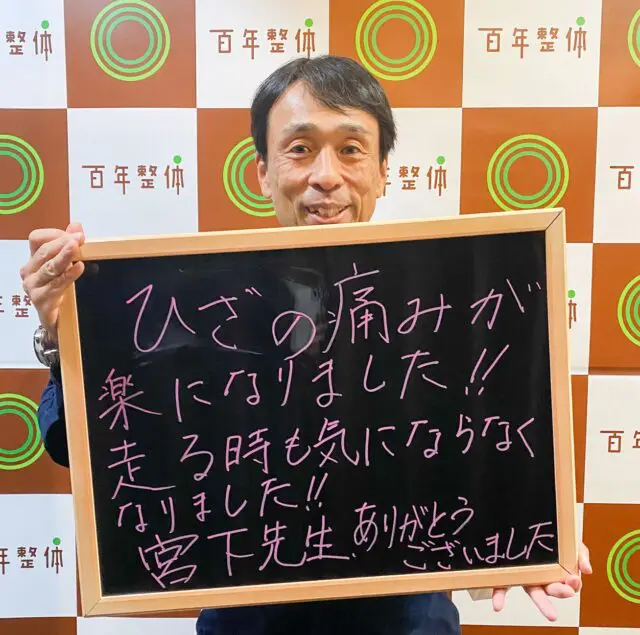 整体
百年整体
百年整体
百年整体
百年整体
ひざの痛みが
楽になりました!!
走る時も気にならなく
なりました!!
宮下先生、ありがとう
ございました
百年
百年整体